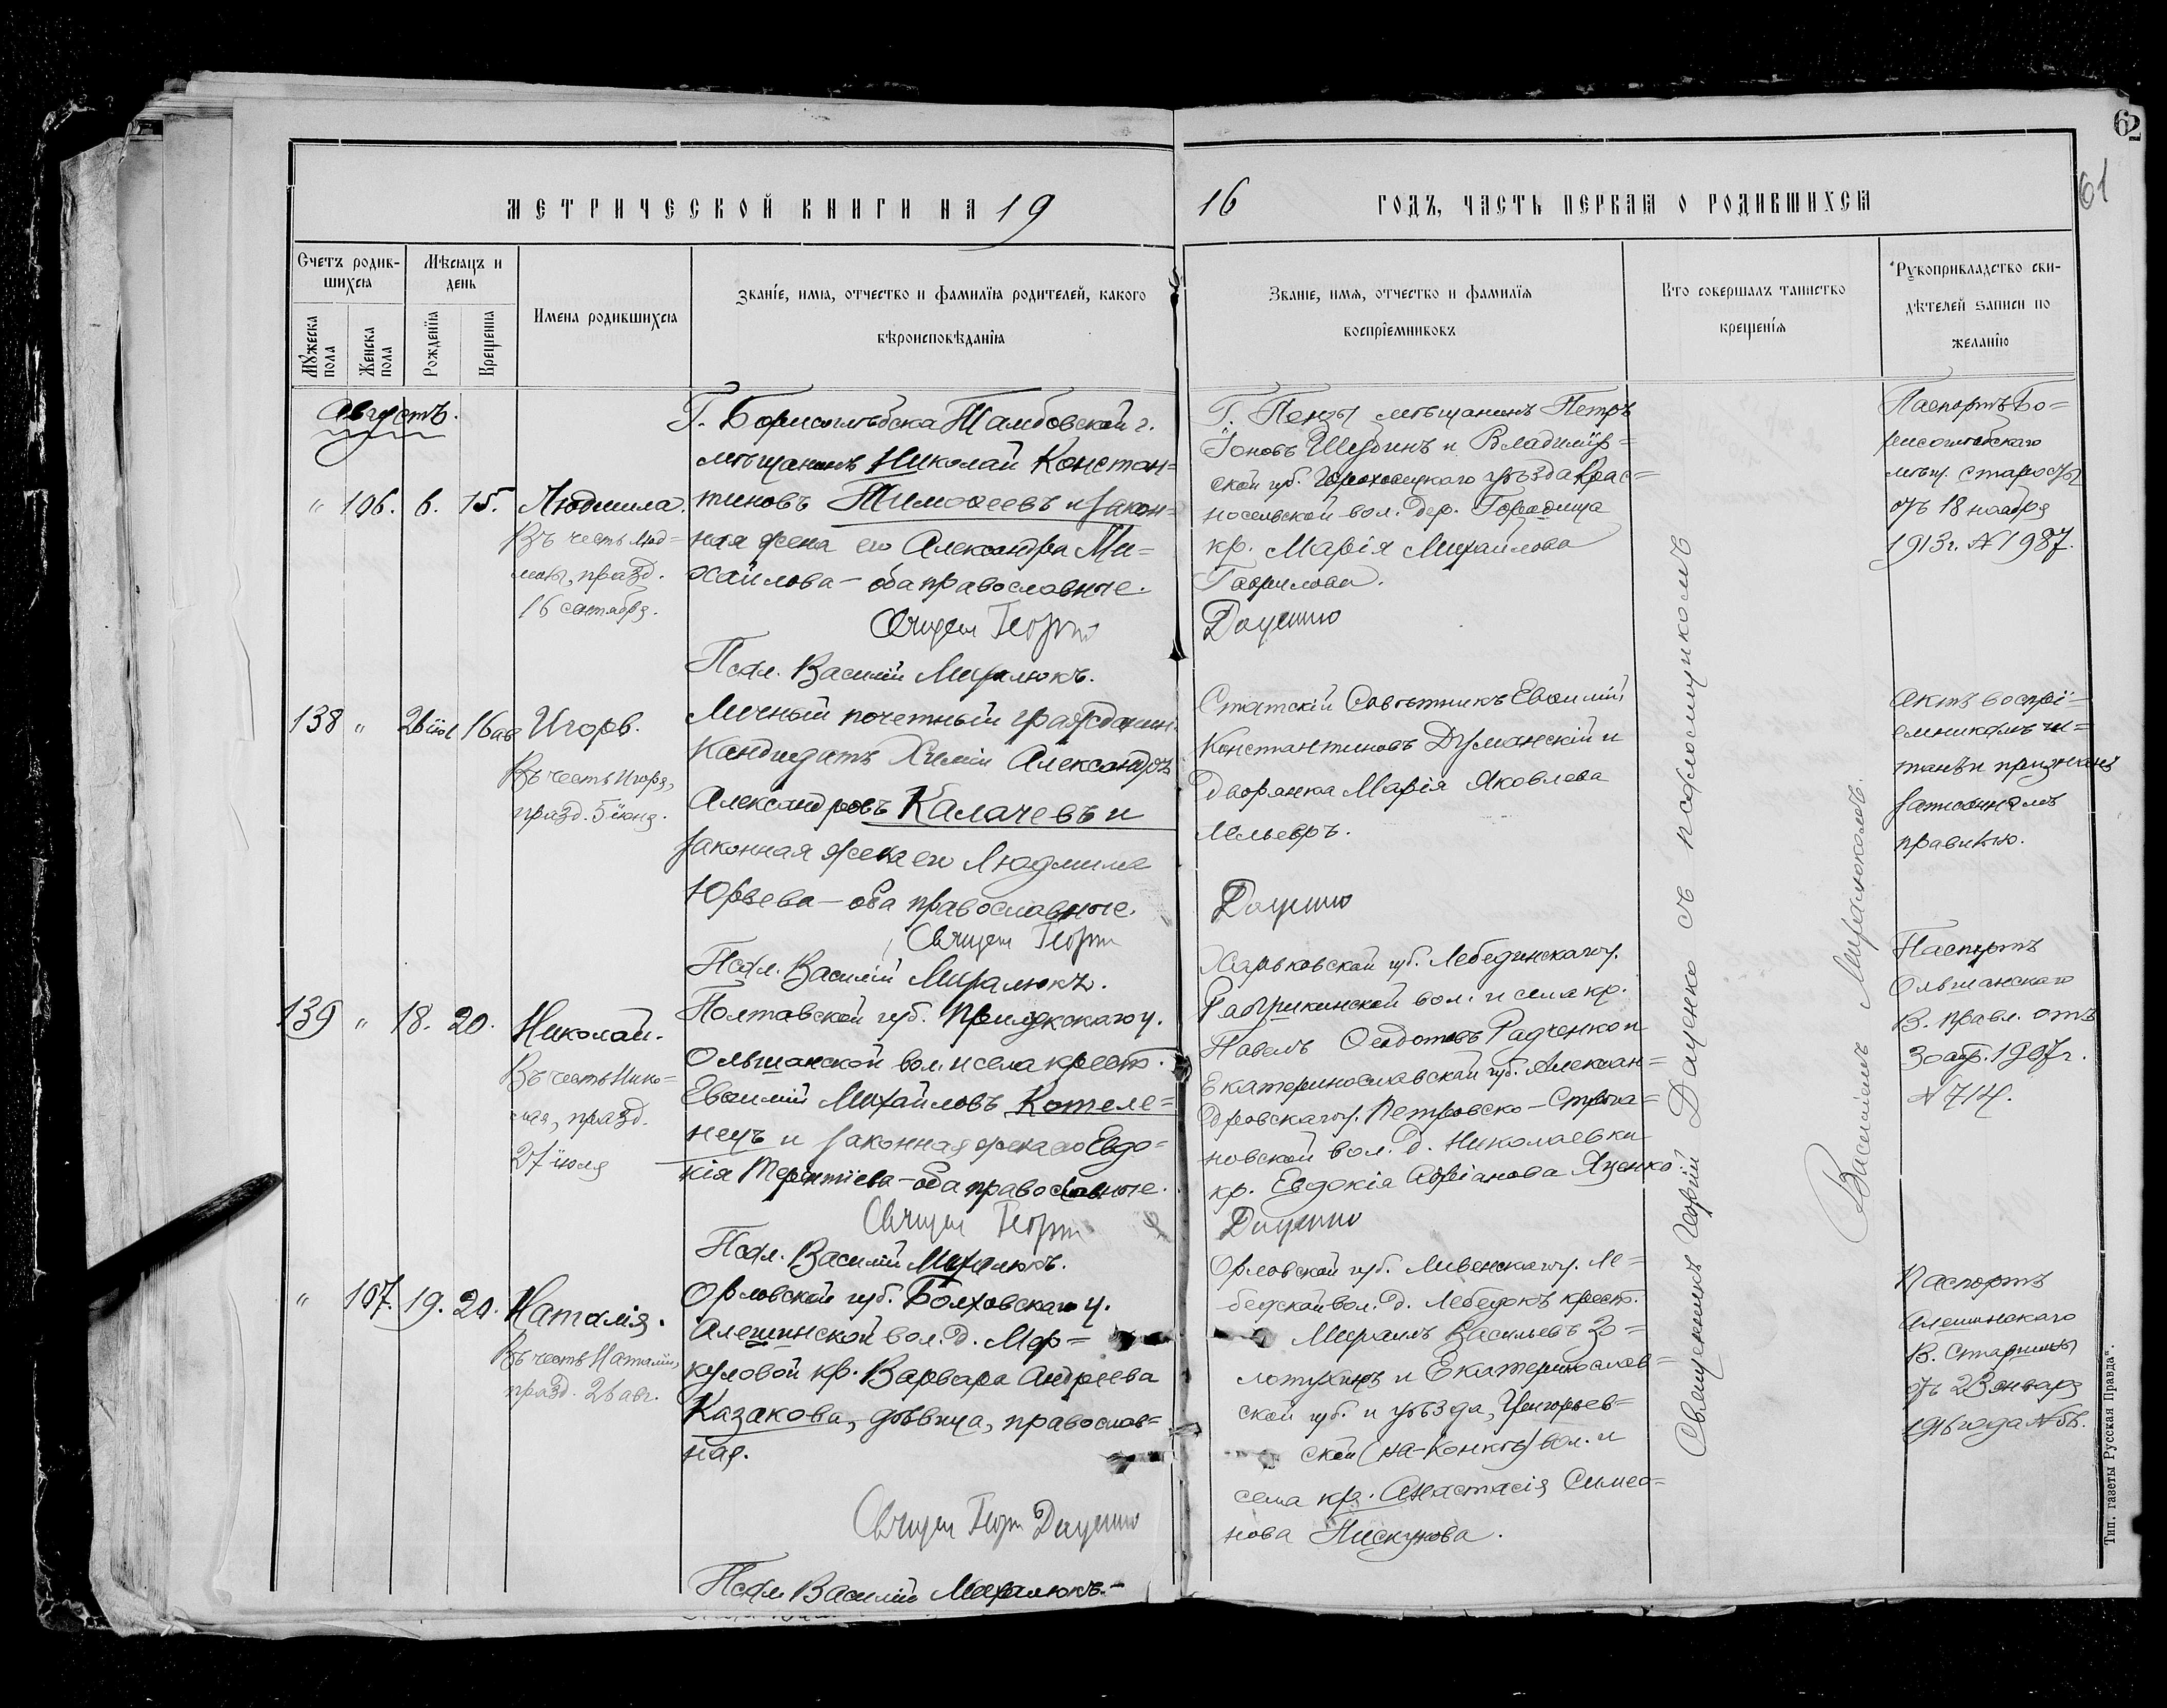 62
61
МЕТРИЧЕСКОЙ КНИГИ НА 1916 ГОДЪ, ЧАСТЬ ПЕРВАЯ О РОДИВШИХСЯ
Счетъ родив-
шихся
Мужеска пола
Женска пола
Мѣсяцъ и
день
Рожденїя
Крещенїя
Имена родившихся
Званїе, имя, отчество и фамилїя родителей, какого
вѣроисповѣданїя
Званїе, имя, отчество и фамилїя
воспрїемниковъ
Кто совершалъ таинство
крещенїя
Рукоприкладство сви-
дѣтелей записи по
желанїю
Августъ.
" 106. 6. 15. Людмила.
Въ честь Люд-
милы, празд.
16 сентября.
Г. Борисоглѣбска Тамбовской г.
мѣщанинъ Николай Констан=
тиновъ Тимоѳеевъ и закон=
ная жена его Александра Ми=
хайлова – оба православные.
Священ Георгій
Псал. Василій Михалюкъ.
Г. Пензы мѣщанинъ Петръ
Іоновъ Шубинъ и Владимір=
ской губ. Гороховецкаго уѣзда Крас=
носельской вол. дер. Городища
кр. Марія Михаилова
Гаврилова.
Даценко
Паспортъ Бо=
рисоглѣбскаго
мѣщ. старосты
отъ 18 ноября
1913 г. № 1987.
138 " 26 іюл 16 ав Игорь.
Въ честь Игоря,
празд. 5 іюня.
Личный почетный гражданин.
Кандидатъ Химіи Александръ
Александровъ Калачевъ и
законная жена его Людмила
Юрьева – оба православные.
Священ Георгій
Псал. Василій Михалюкъ.
Статскій Совѣтникъ Евѳимій
Константиновъ Думанскій и
дворянка Марія Яковлева
Мельеръ.
Даценко
Актъ воспрі=
емникамъ чи=
танъ и признанъ
записаннымъ
правильно.
139 " 18. 20. Николай.
Въ честь Нико=
лая, празд.
27 іюля
Полтавской губ. Прилукскаго у.
Ольшанской вол. и села крест.
Евѳимій Михайловъ Котеле=
нецъ и законная жена его Евдо=
кія Терентіева – оба православные.
Священ Георгій
Псал. Василій Михалюкъ.
Харьковской губ. Лебединскаго у.
Рабушкинской вол. и села кр.
Павелъ Ѳедотовъ Радченко и
Екатеринославской губ. Алексан=
дровскаго у. Петровско-Строга=
новской вол. д. Николаевки
кр. Евдокія Адріанова Яценко.
Даценко
Паспортъ
Ольшанскаго
В. правл. отъ
30 апр. 1907 г.
№ 714.
" 107. 19. 20. Наталія.
Въ честь Наталіи,
празд. 26 авг.
Орловской губ. Болховскаго у.
Алешинской вол. д. Мер=
куловой кр. Варвара Андреева
Казакова, дѣвица, православ=
ная.
Священ Георг Даценко
Псал Василій Михалюкъ.
Орловской губ. Ливенскаго у. Ле=
бедской вол. д. Лебедокъ крест.
Михаилъ Васильевъ Зо=
лотухинъ и Екатеринослав=
ской губ. и уѣзда, Григорьев=
ской (на-Конкѣ) вол. и
села кр. Анастасія Симео=
нова Пискунова.
Паспортъ
Алешинскаго
В. Старшины
отъ 23 января
1916 года № 56.
Священникъ Георгій Даценко съ псаломщикомъ
Василіемъ Михалюкомъ.
Тип. газеты Русская Правда".